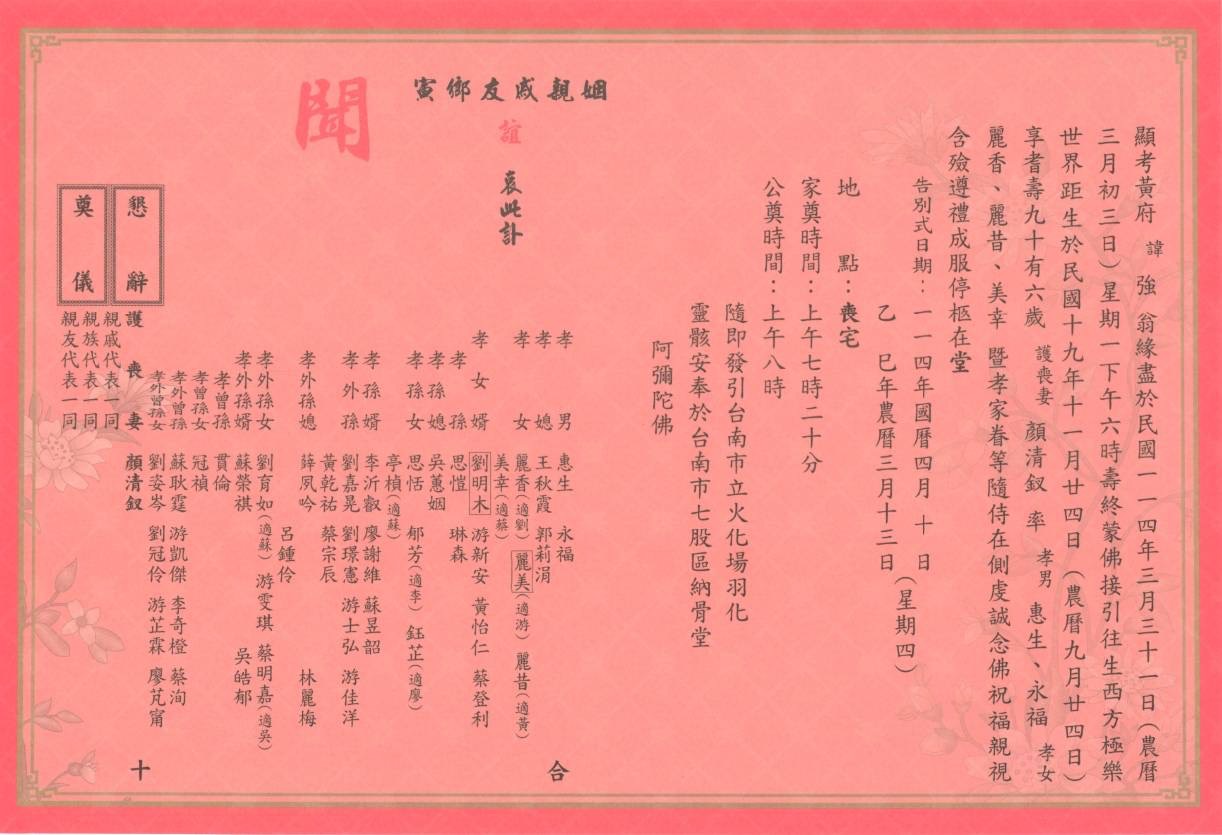 顯考黃府 諱 強 翁緣盡於民國一一四年三月三十一日（農曆
三月初三日）星期一下午六時壽終蒙佛接引往生西方極樂
世界距生於民國十九年十一月廿四日（農曆九月廿四日）
享耆壽九十有六歲 護喪妻 顏清釵 率 孝男 惠生、永福 孝女
麗香、麗昔、美幸 暨孝家眷等隨侍在側虔誠念佛祝福親視
含殮遵禮成服停柩在堂
告別式日期：一一四年國曆四月 十 日
乙 巳年農曆三月十三日
（星期四）
地 點：喪宅
家奠時間：上午七時二十分
公奠時間：上午八時
隨即發引台南市立火化場羽化
靈骸安奉於台南市七股區納骨堂
阿彌陀佛
姻親戚友鄉寅
誼
哀此訃
聞
孝男 惠生 永福
孝媳 王秋霞 郭莉涓
孝女 麗香（適劉） 麗美（適游） 麗昔（適黃）
美幸（適蔡）
孝女婿 劉明木 游新安 黃怡仁 蔡登利
孝孫 思愷 琳森
孝孫媳 吳蕙姻
孝孫女 思恬 郁芳（適李） 鈺芷（適廖）
亭楨（適蘇）
孝孫婿 李沂叡 廖謝維 蘇昱韶
孝外孫 劉嘉晃 劉璟憲 游士弘 游佳洋
黃乾祐 蔡宗辰
孝外孫媳 薛夙吟 林麗梅
呂鍾伶
孝外孫女 劉育如（適蘇） 游雯琪 蔡明嘉（適吳）
孝外孫婿 蘇榮祺 吳皓郁
孝曾孫 貫倫
孝曾孫女 冠禎
孝外曾孫 蘇耿霆 游凱傑 李奇橙 蔡洵
孝外曾孫女 劉姿岑 劉冠伶 游芷霖 廖芃甯
護喪妻 顏清釵
親戚代表一同
親族代表一同
親友代表一同
懇辭
奠儀
合
十